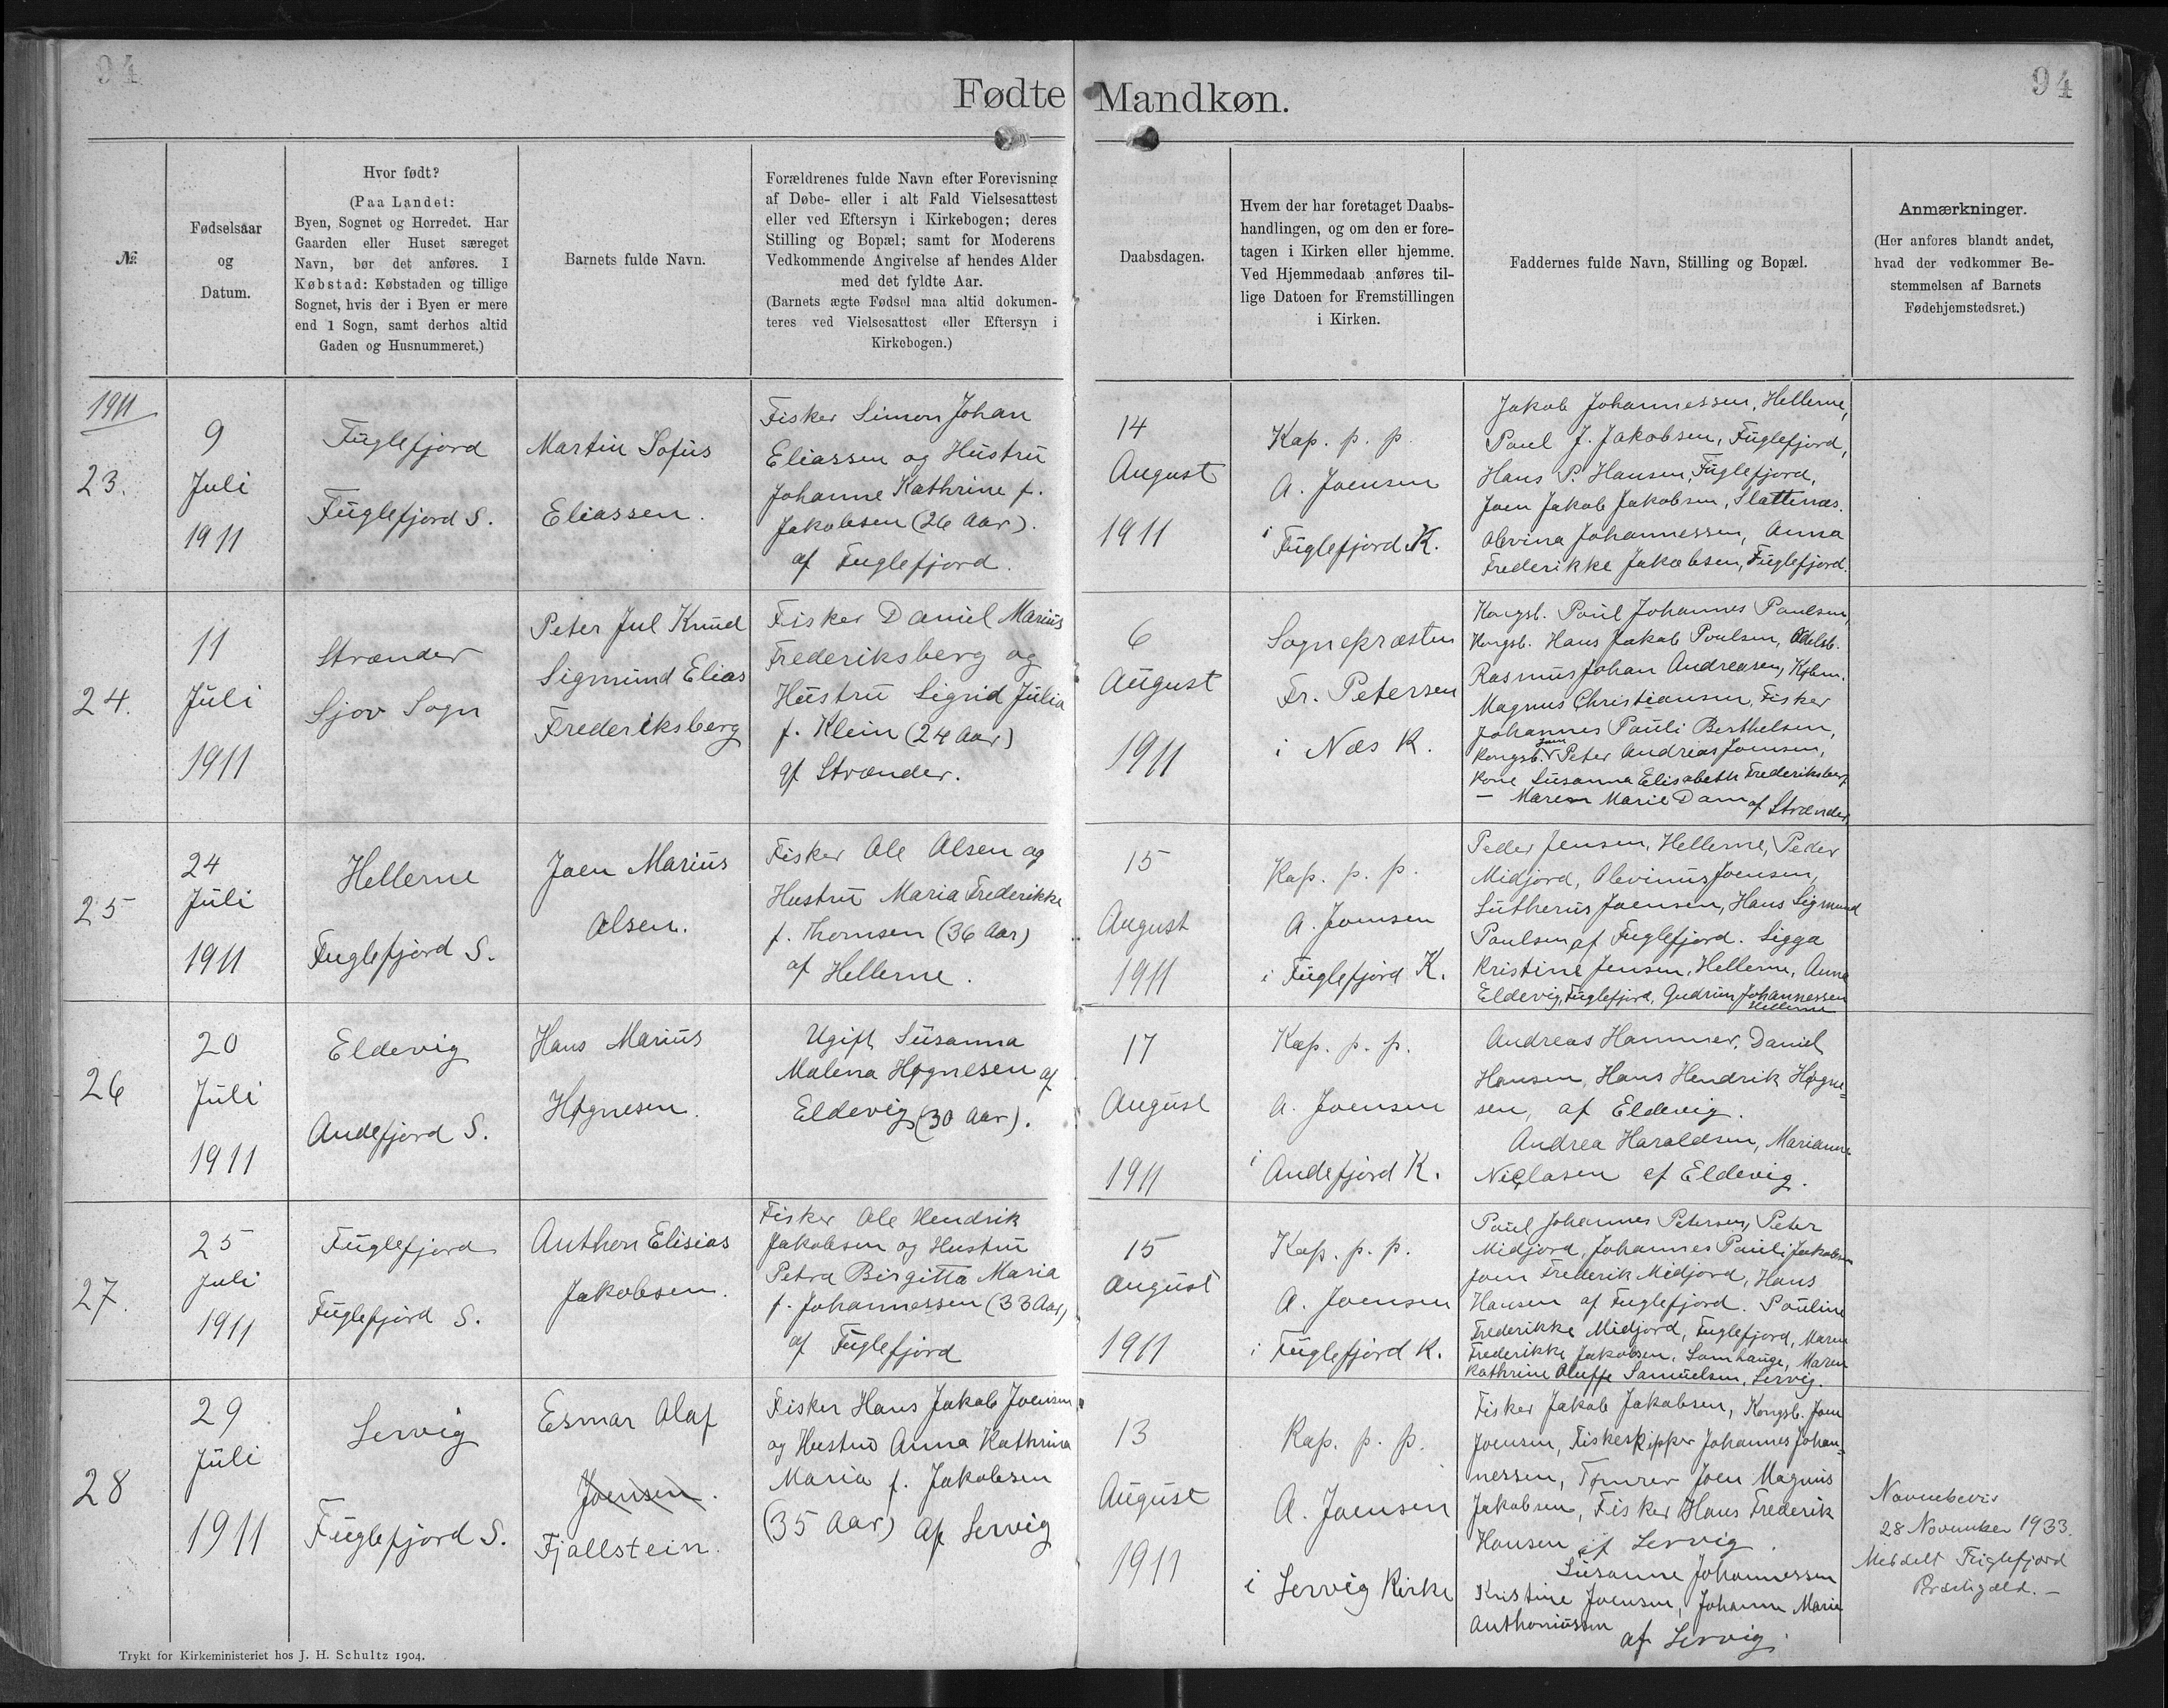 94
94
Fødte Mandkøn.
№
Fødselsaar
og
Datum.
Hvor født?
(Paa Landet:
Byen, Sognet og Herredet. Har
Gaarden eller Huset særeget
Navn, bør det anføres. I
Købstad: Købstaden og tillige
Sognet, hvis der i Byen er mere
end 1 Sogn, samt derhos altid
Gaden og Husnummeret.)
Barnets fulde Navn.
Forældrenes fulde Navn efter Forevisning
af Døbe- eller i alt Fald Vielsesattest
eller ved Eftersyn i Kirkebogen; deres
Stilling og Bopæl; samt for Moderens
Vedkommende Angivelse af hendes Alder
med det fyldte Aar.
(Barnets ægte Fødsel maa altid dokumen-
teres ved Vielsesattest eller Eftersyn i
Kirkebogen.)
Daabsdagen.
Hvem der har foretaget Daabs-
handlingen, og om den er fore-
tagen i Kirken eller hjemme.
Ved Hjemmedaab anføres til-
lige Datoen for Fremstillingen
i Kirken.
Faddernes fulde Navn, Stilling og Bopæl.
Anmærkninger.
(Her anføres blandt andet,
hvad der vedkommer Be-
stemmelsen af Barnets
Fødehjemstedsret.)
1911
23.
9
Juli
1911
Fuglefjord
Fuglefjord S.
Martin Sofus
Eliassen.
Fisker Simon Johan
Eliassen og Hustru
Johanne Kathrine f.
Jakobsen (26 Aar).
af Fuglefjord.
14
August
1911
Kap. p. p.
A. Joensen
i Fuglefjord K.
Jakob Johannessen, Hellerne,
Poul J. Jakobsen, Fuglefjord,
Hans P. Hansen, Fuglefjord,
Joen Jakob Jakobsen, Slattenæs.
Olevina Johannessen, Anna
Frederikke Jakobsen, Fuglefjord.
24.
11
Juli
1911
Strænder
Sjov Sogn
Peter Jul Knud
Sigmund Elias
Frederiksberg
Fisker Daniel Marius
Frederiksberg og
Hustru Sigrid Julia
f. Klein (24 Aar)
af Strænder.
6
August
1911
Sognepræsten
Fr. Petersen
i Næs K.
Kongsb. Poul Johannes Poulsen,
Kongsb. Hans Jakob Poulsen, Odelsb.
Rasmus Johan Andreasen, Købm.
Magnus Christiansen, Fisker
Johannes Pauli Berthelsen,
Kongsb. Joen Peter Andreas Joensen,
Kone Susanna Elisabeth Frederiksberg
— Maren Marie Dam af Strænder.
25
24
Juli
1911
Hellerne
Fuglefjord S.
Joen Marius
Olsen.
Fisker Ole Olsen og
Hustru Maria Frederikke
f. Thomsen (36 Aar)
af Hellerne.
15
August
1911
Kap. p. p.
A. Joensen
i Fuglefjord K.
Peder Jensen, Hellerne, Peder
Midjord, Olevinus Joensen,
Lutherus Joensen, Hans Sigmund
Poulsen af Fuglefjord. Sigga
Kristine Jensen, Hellerne, Anna
Eldevig, Fuglefjord, Gudrun Johannessen
Hellerne
26
20
Juli
1911
Eldevig
Andefjord S.
Hans Marius
Høgnesen.
Ugift Susanna
Malena Høgnesen af
Eldevig (30 Aar).
17
August
1911
Kap. p. p.
A. Joensen
i Andefjord K.
Andreas Hammer, Daniel
Hansen, Hans Hendrik Høgne-
sen, af Eldevig.
Andrea Haraldsen, Marianne
Niclasen af Eldevig.
27.
25
Juli
1911
Fuglefjord
Fuglefjord S.
Anthon Elisias
Jakobsen.
Fisker Ole Hendrik
Jakobsen og Hustru
Petra Birgitta Maria
f. Johannessen (33 Aar)
af Fuglefjord
15
August
1911
Kap. p. p.
A. Joensen
i Fuglefjord K.
Poul Johannes Petersen, Peter
Midjord, Johannes Pauli Jakobsen
Joen Frederik Midjord, Hans
Hansen af Fuglefjord. Pouline
Frederikke Midjord, Fuglefjord, Maren
Frederikke Jakobsen, Lamhauge, Maren
Kathrine Oluffe Samuelsen, Lervig.
28
29
Juli
1911
Lervig
Fuglefjord S.
Esmar Olaf
Joensen.
Fjallstein.
Fisker Hans Jakob Joensen
og Hustru Anna Kathrina
Maria f. Jakobsen
(35 Aar) af Lervig
13
August
1911
Kap. p. p.
A. Joensen
i Lervig Kirke
Fisker Jakob Jakobsen, Kongsb. Joen
Joensen, Fiskeskipper Johannes Johan-
nessen, Tømrer Joen Magnus
Jakobsen, Fisker Hans Frederik
Hansen af Lervig.
Susanne Johannessen
Kristine Joensen, Johanne Marie
Anthoniussen
af Lervig.
Navnebevis
28 November 1933.
Meddelt Fuglefjord
Præstegæld. —
Trykt for Kirkeministeriet hos J. H. Schultz 1904.